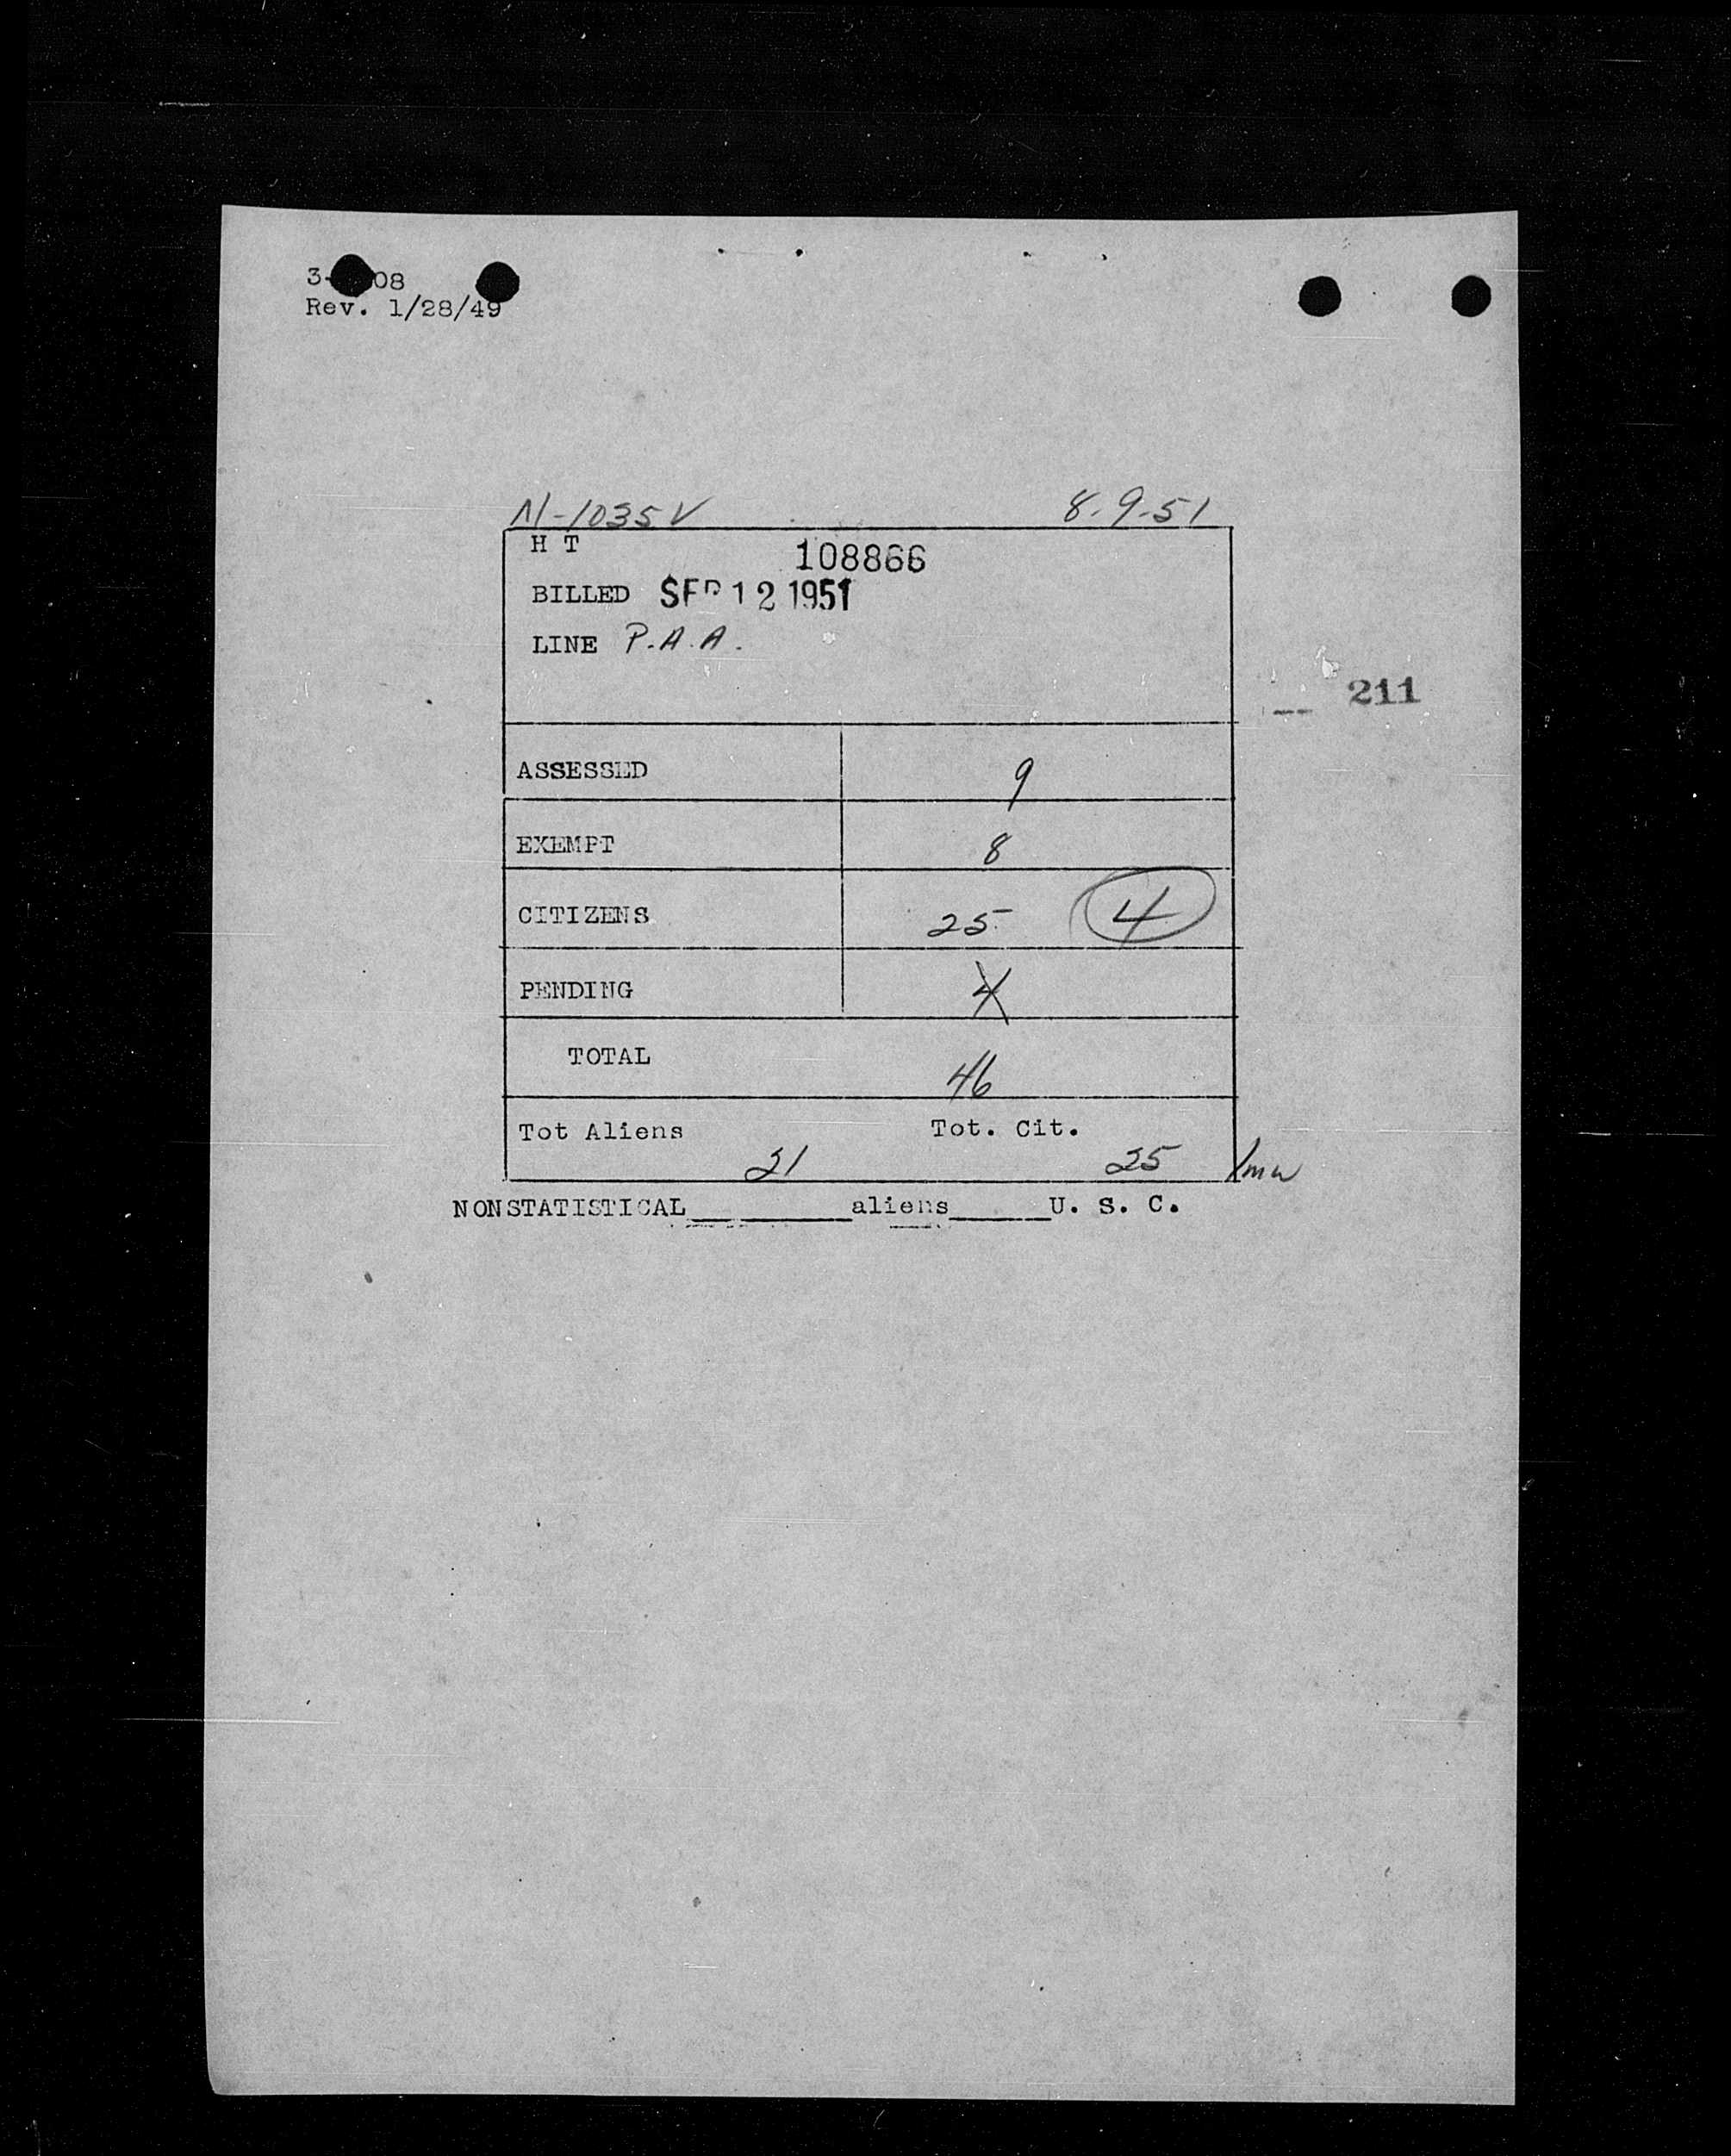 08
Rev. 1/28/49
N-1035V 8.9.51
H T 108866
BILLED SEP 12 1951
LINE P.A.A.
211
ASSESSED 9
EXEMPT 8
CITIZENS 25 4
PENDING 4
TOTAL 46
Tot Aliens Tot. Cit.
21 25
NONSTATISTICAL aliens U. S. C.